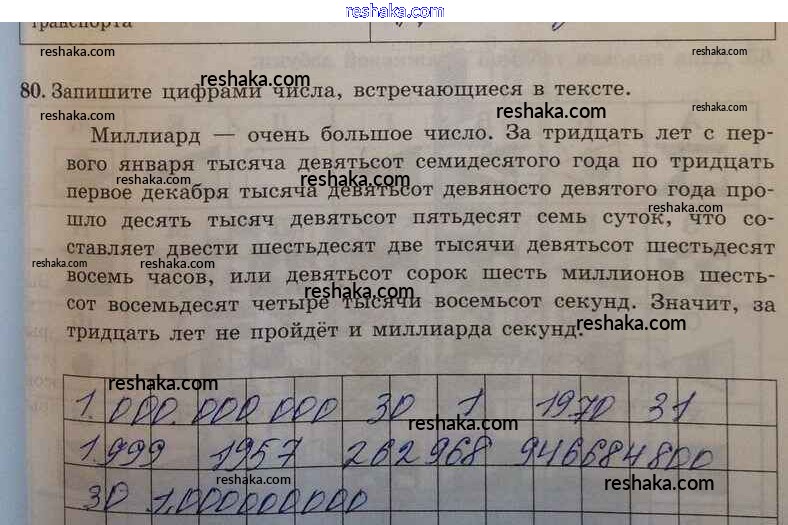 reshaka.com
транспорта
reshaka.com
reshaka.com
reshaka.com
80. Запишите цифрами числа, встречающиеся в тексте.
reshaka.com
reshaka.com
reshaka.com
Миллиард — очень большое число. За тридцать лет с пер-
вого января тысяча девятьсот семидесятого года по тридцать
reshaka.com
первое декабря тысяча девятьсот девяносто девятого года про-
reshaka.com
шло десять тысяч девятьсот пятьдесят семь суток, что со-
ставляет двести шестьдесят две тысячи девятьсот шестьдесят
reshaka.com reshaka.com
восемь часов, или девятьсот сорок шесть миллионов шесть-
reshaka.com
сот восемьдесят четыре тысячи восемьсот секунд. Значит, за
reshaka.com
тридцать лет не пройдёт и миллиарда секунд.
reshaka.com
1.000.000 000 30 1 1970 31
reshaka.com
1.999 1957 262 968 946684800
reshaka.com
30 1.000000000